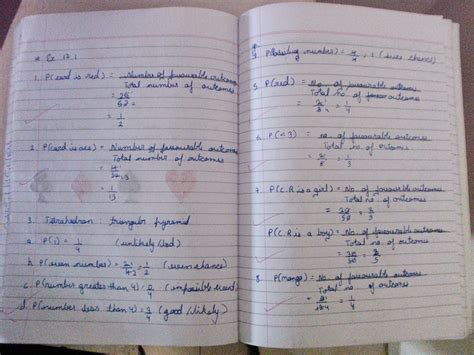 * Ex 17.1
1. P(card is red) = Number of favourable outcomes
Total number of outcomes
= 26
52
= 1
2
2. P(card is ace) = Number of favourable outcomes
Total number of outcomes
= 4
52
= 1
13
3. Tetrahedron : triangular pyramid
a. P(1) = 1/4 (unlikely)
b. P(even number) = 2/4 = 1/2 (even chance)
c. P(number greater than 4) = 0/4 (impossible)
d. P(number less than 4) = 3/4 (good/likely)
number) = 4/4 = 1 (sure chance)
5. P(red) = No. of favourable outcomes
Total No. of outcomes
= 1
4
6. P(<3) = no. of favourable outcomes
Total no. of outcomes
= 1
3
7. P(C.R is a girl) = No. of favourable outcomes
Total No. of outcomes
= 2
3
P(C.R is a boy) = No. of favourable outcomes
Total no. of outcomes
8. P(mango) = No. of favourable outcomes
Total no. of outcomes
= 1
4